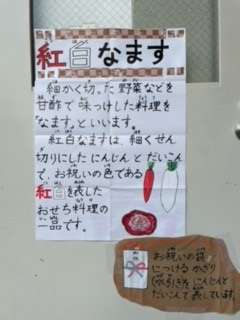 紅白なます
細かく切った野菜などを
甘酢で味つけした料理を
「なます」といいます。
紅白なますは、細くせん
切りにしたにんじんとだいこん
で、お祝いの色である
紅白を表した
おせち料理の
一品です。
お祝いの袋
につけるかざり
(水引)を にんじんと
だいこんで表しています。